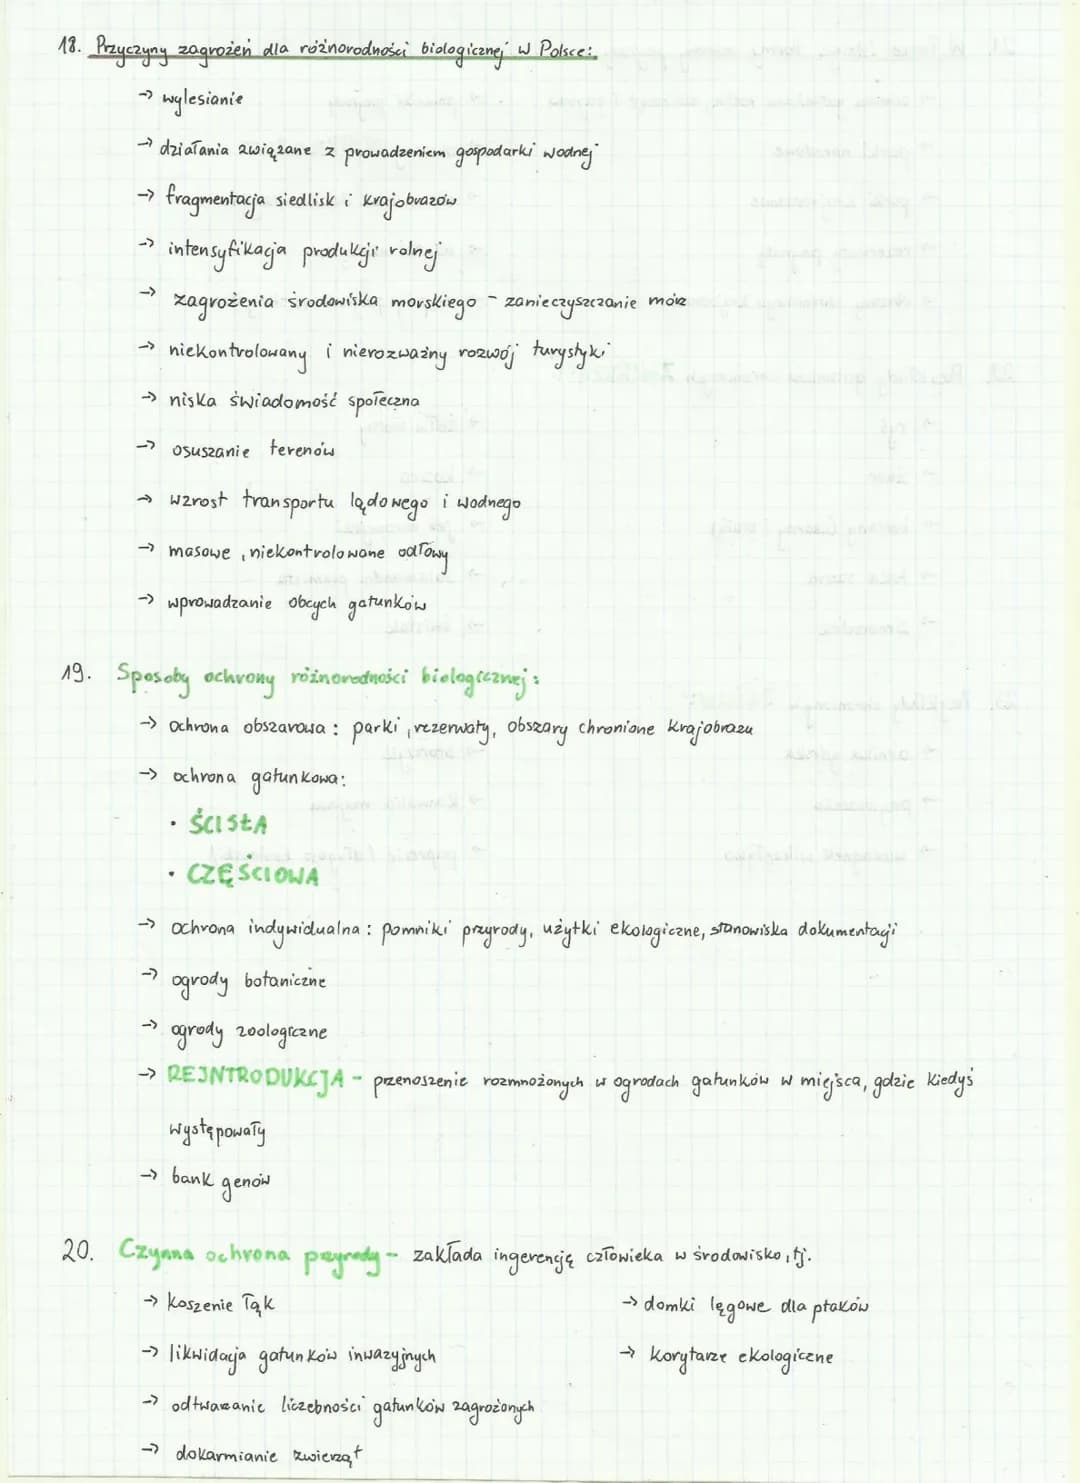 18. Przyczyny zagrożeń dla różnorodności biologicznej w Polsce:
→ wylesianie
→ działania związane z prowadzeniem gospodarki wodnej
→ fragmentacja siedlisk i krajobrazów
→ intensyfikacja produkcji rolnej
→ zagrożenia środowiska morskiego - zanieczyszczanie mórz
→ niekontrolowany i nierozważny rozwój turystyki
→ niska świadomość społeczna
→ osuszanie terenów
→ wzrost transportu lądowego i wodnego
→ masowe, niekontrolowane odłowy
→ wprowadzanie obcych gatunków
19. Sposoby ochrony różnorodności biologicznej:
→ ochrona obszarowa: parki, rezerwaty, obszary chronione krajobrazu
→ ochrona gatunkowa:
• ŚCISŁA
• CZĘŚCIOWA
→ ochrona indywidualna: pomniki przyrody, użytki ekologiczne, stanowiska dokumentacji
→ ogrody botaniczne
→ ogrody zoologiczne
→ REINTRODUKCJA - przenoszenie rozmnożonych w ogrodach gatunków w miejsca, gdzie kiedyś
występowały
→ bank genów
20. Czynna ochrona przyrody - zakłada ingerencję człowieka w środowisko, tj.
→ koszenie łąk → domki lęgowe dla ptaków
→ likwidacja gatunków inwazyjnych → korytarze ekologiczne
→ odtwarzanie liczebności gatunków zagrożonych
→ dokarmianie zwierząt